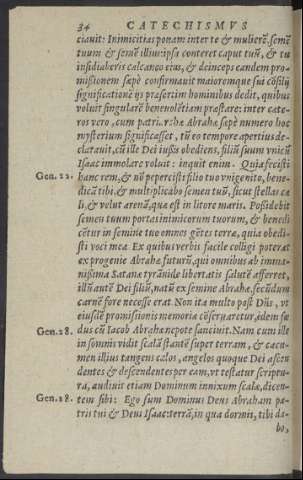 34 CATECHISMVS
ciauit: Inimicitias ponam inter te & mulierē, semē
tuum & semē illius: ipsa conteret caput tuū, & tu
insidiaberis calcaneo eius, & deinceps eandem pro-
missionem sæpè confirmauit maioremque sui cōsilij
significationē ijs præsertim hominibus dedit, quibus
voluit singularē beneuolētiam præstare: inter cate-
ros vero, cum patriarchæ Abrahæ sæpè numero hoc
mysterium significasset, tū eo tempore apertius de-
clarauit, cū ille Dei iussis obediens, filiū suum vnicū
Isaac immolare voluit: inquit enim. Quia fecisti
Gen. 22. hanc rem, & nō pepercisti filio tuo vnigenito, bene-
dicā tibi, & multiplicabo semen tuū, sicut stellas cæ
li, & velut arenā, quæ est in litore maris. Possidebit
semen tuum portas inimicorum tuorum, & benedi
cētur in semine tuo omnes gētes terræ, quia obedi-
sti voci meæ. Ex quibus verbis facile colligi poterat
ex progenie Abrahæ futurū, qui omnibus ab imma-
nissima Satanæ tyrānide libertatis salutē afferret,
illū autē Dei filiū, natū ex semine Abrahæ secūdum
carnē fore necesse erat. Non ita multo post Dn̄s, vt
eiusdē promissionis memoria cōseruaretur, idem fœ
Gen. 28. dus cū Iacob Abrahæ nepote sanciuit. Nam cum ille
in somnis vidit scalā stantē super terram, & cacu-
men illius tangens cælos, angelos quoque Dei ascen
dentes & descendentes per eam, vt testatur scriptu-
ra, audiuit etiam Dominum innixum scalæ, dicen-
Gen. 28. tem sibi: Ego sum Dominus Deus Abraham pa-
tris tui & Deus Isaac: terrā, in qua dormis, tibi da-
bo,